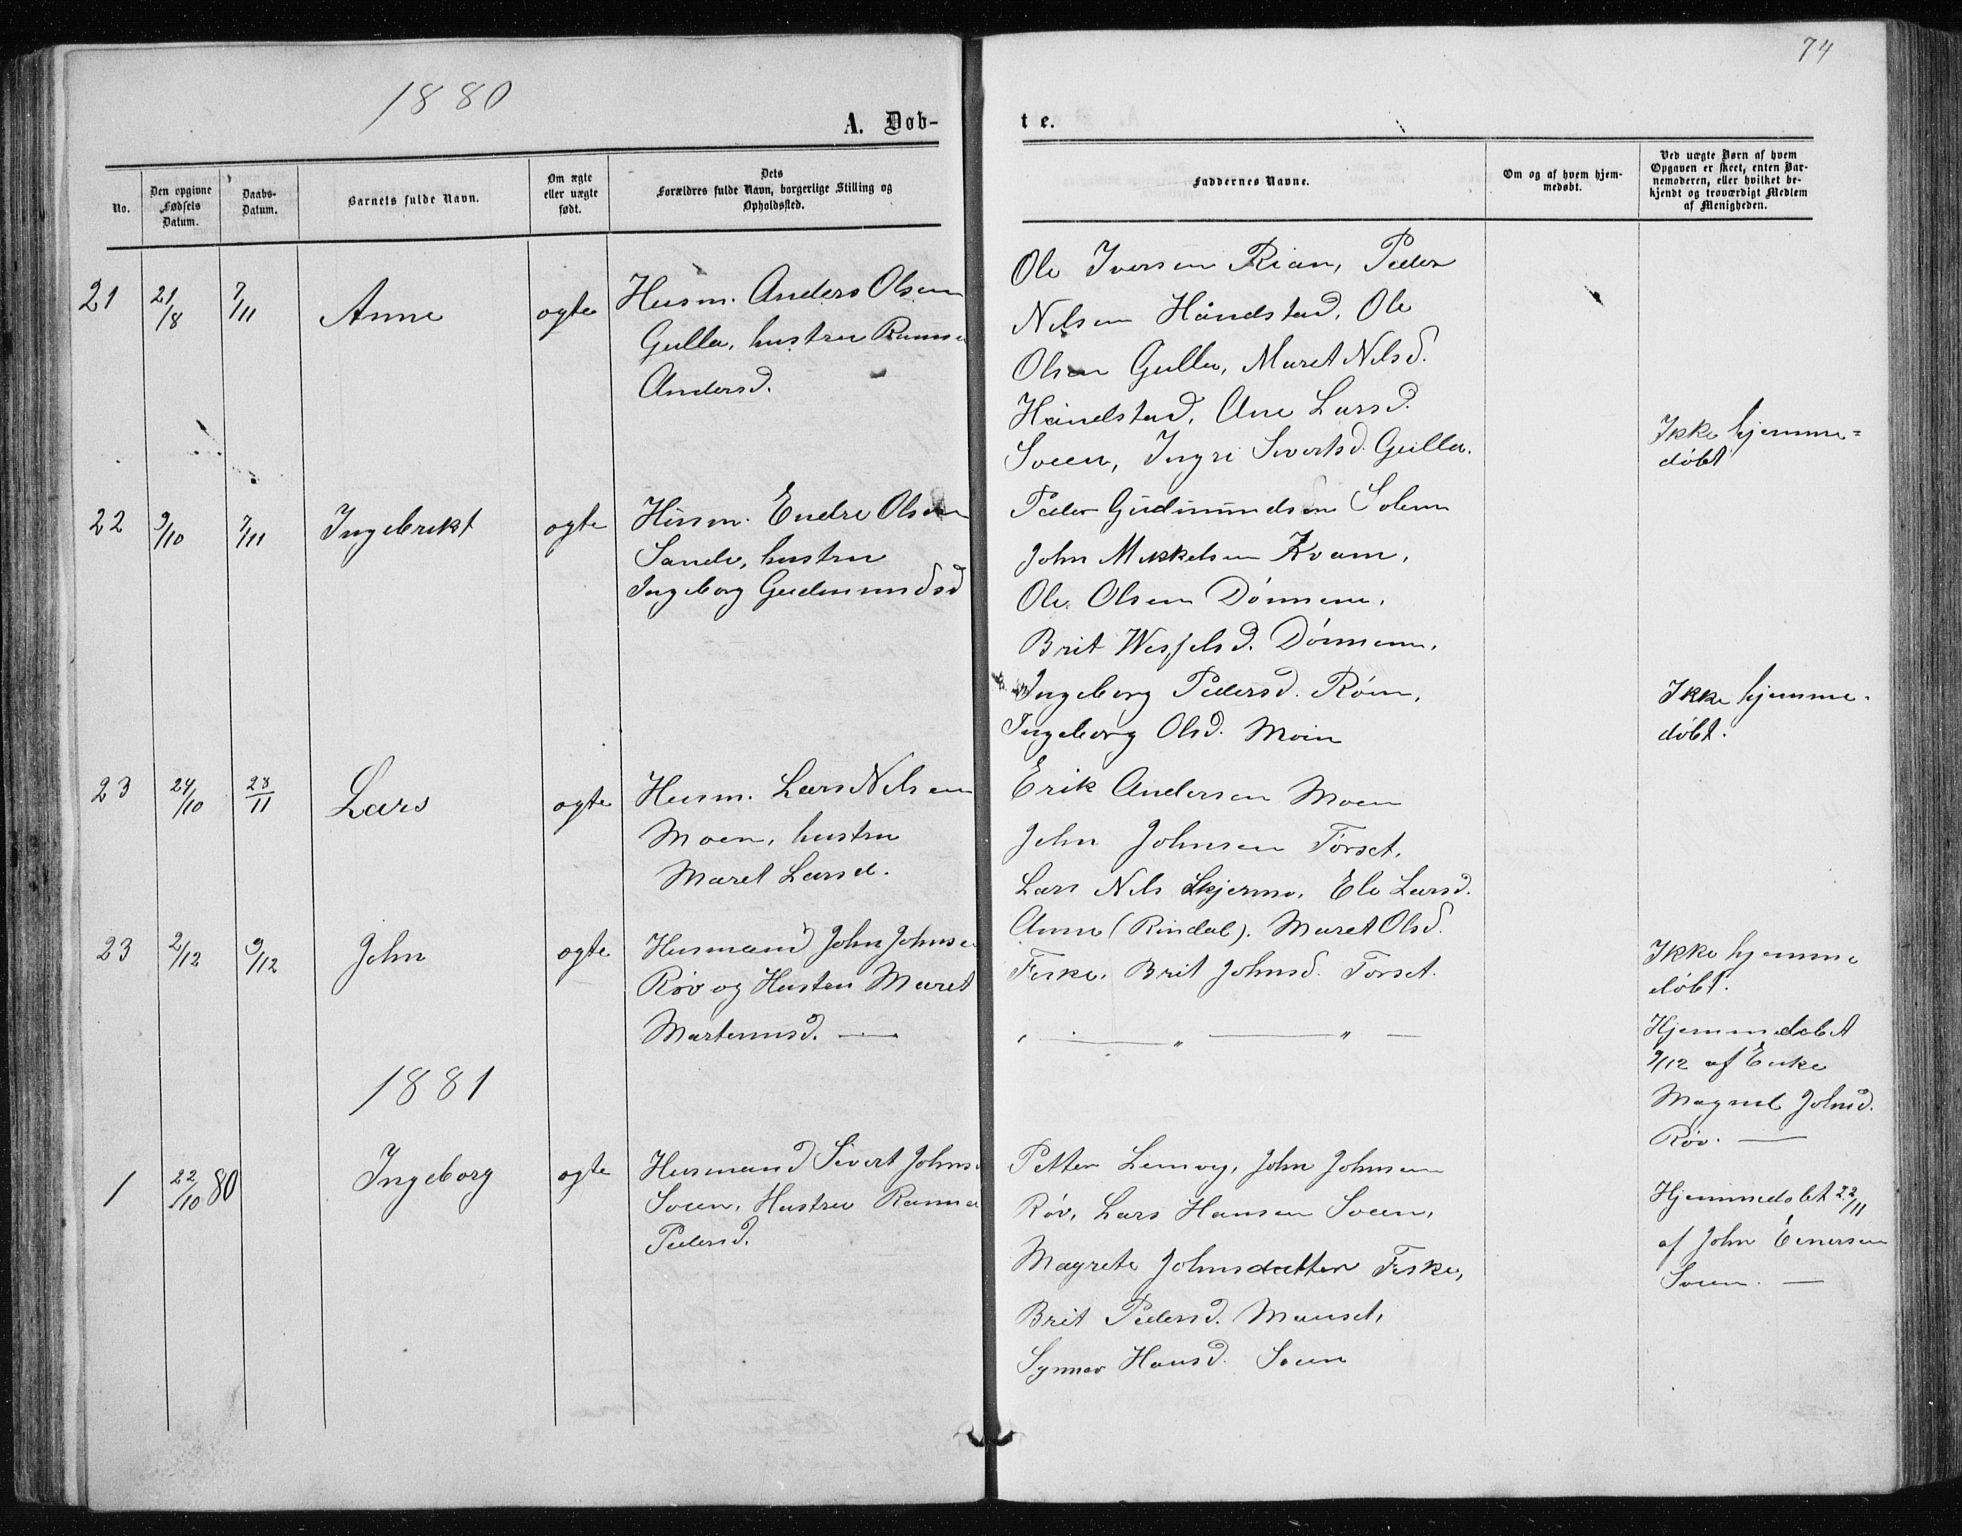 74
1880
A. Døb-
t e.
No.
Den opgivne
Fødsels
Datum.
Daabs-
Datum.
Barnets fulde Navn.
Om ægte
eller uægte
født.
Dets
Forældres fulde Navn, borgerlige Stilling og
Opholdssted.
Faddernes Navne.
Om og af hvem hjem-
medøbt.
Ved uægte Børn af hvem
Opgaven er skeet, enten Bar-
nemoderen, eller hvilket be-
kjendt og troværdigt Medlem
af Menigheden.
21 21/8 7/11 Anne ogte Husm. Anders Olsen
Gulla, hustru
Andersd.
Ole Iversen Rian, Peder
Nilsen Håndstad, Ole
Olsen Gulla, Maret Nilsd.
Håndstad, Ane Larsd.
Soeen, Ingri Sivertsd. Gulla.
Ikke hjemme=
døbt
22 9/10 7/11 Ingebrikt ogte Husm. Endre Olsen
Sande, hustru
Ingeborg Gudmundsd
Peder Gudmundsen Solem
John Mikkelsen Kvam,
Ole Olsen Dönnem,
Brit Wesselsd. Dönnem,
Ingeborg Pedersd. Röen,
Ingeborg Olsd. Moen
Ikke hjemme-
døbt.
23 24/10 28/11 Lars ogte Husm. Lars Nilsen
Moen, hustru
Maret Larsd.
Erik Andersen Moen
John Johnsen Törset,
Lars Nils Skjermo, Eli Larsd.
Anne (Rindal). Maret Olsd.
Feske, Brit Johnsd. Torset.
Ikke hjemme
døbt.
23 2/12 9/12 John ogte Husmand John Johnsen
Röv og Hustru Maret
Martennsd. —
, — „ — „ —
Hjemmedøbt
9/12 af Enke
Magnil Johnsd.
Röv. —
1881
1 22/10 80 Ingeborg ogte Husmand Sivert Johns
Soeen, Hustru
Pedersd.
Petter Lemvig, John Johnsen
Röv, Lars Hansen Soeen,
Magrete Johnsdatter Feske,
Brit Pedersd. Mauset,
Synnev Hansd. Soeen
Hjemmedøbt 22/11
af John Einersen
Soeen. —